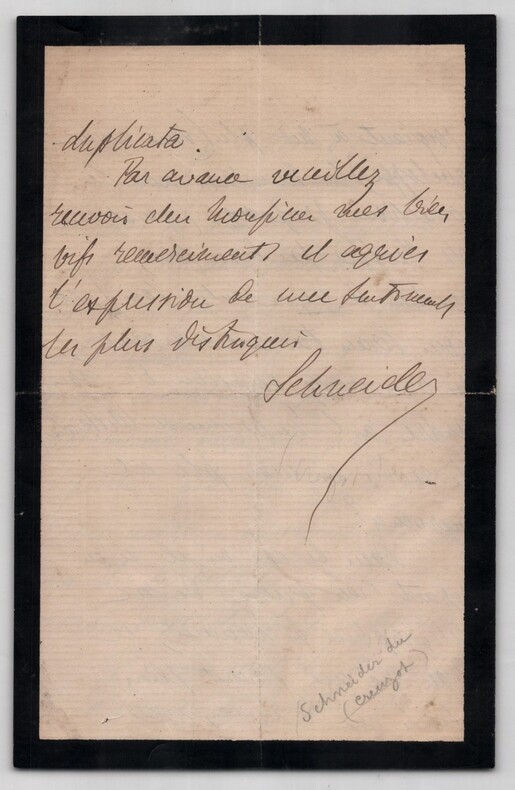 duplicata.
Par avance veuillez
recevoir cher Monsieur mes bien
vifs remerciements et agréer
l'expression de mes sentiments
les plus distingués
Schneider
Schneider du
(Creuzot)